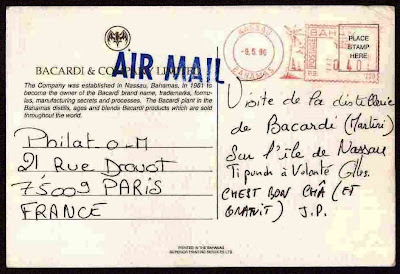 NASSAU
-9.5.96
BAHAMAS
BAHAMAS
POSTAGE
PLACE
STAMP
HERE
P.B.
AIR MAIL
BACARDI & COMPANY LIMITED
The Company was established in Nassau, Bahamas, in 1961 to
become the owner of the Bacardi brand name, trademarks, formu-
las, manufacturing secrets and processes. The Bacardi plant in the
Bahamas distills, ages and blends Bacardi products which are sold
throughout the world.
Philat-o-M
21 Rue Drouot
75009 PARIS
FRANCE
Visite de la distillerie
de Bacardi (Martini)
Sur l'île de Nassau
Ti punds à Volonté
CHEST BON CHÂ (ET
GRATUIT) J.P.
PRINTED IN THE BAHAMAS
SUPERIOR PRINTING SERVICES LTD.